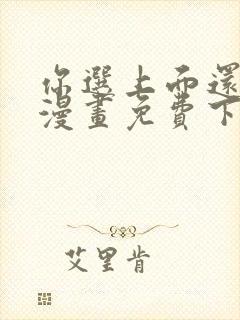 你選上而還
漫畫免費下
艾里肯